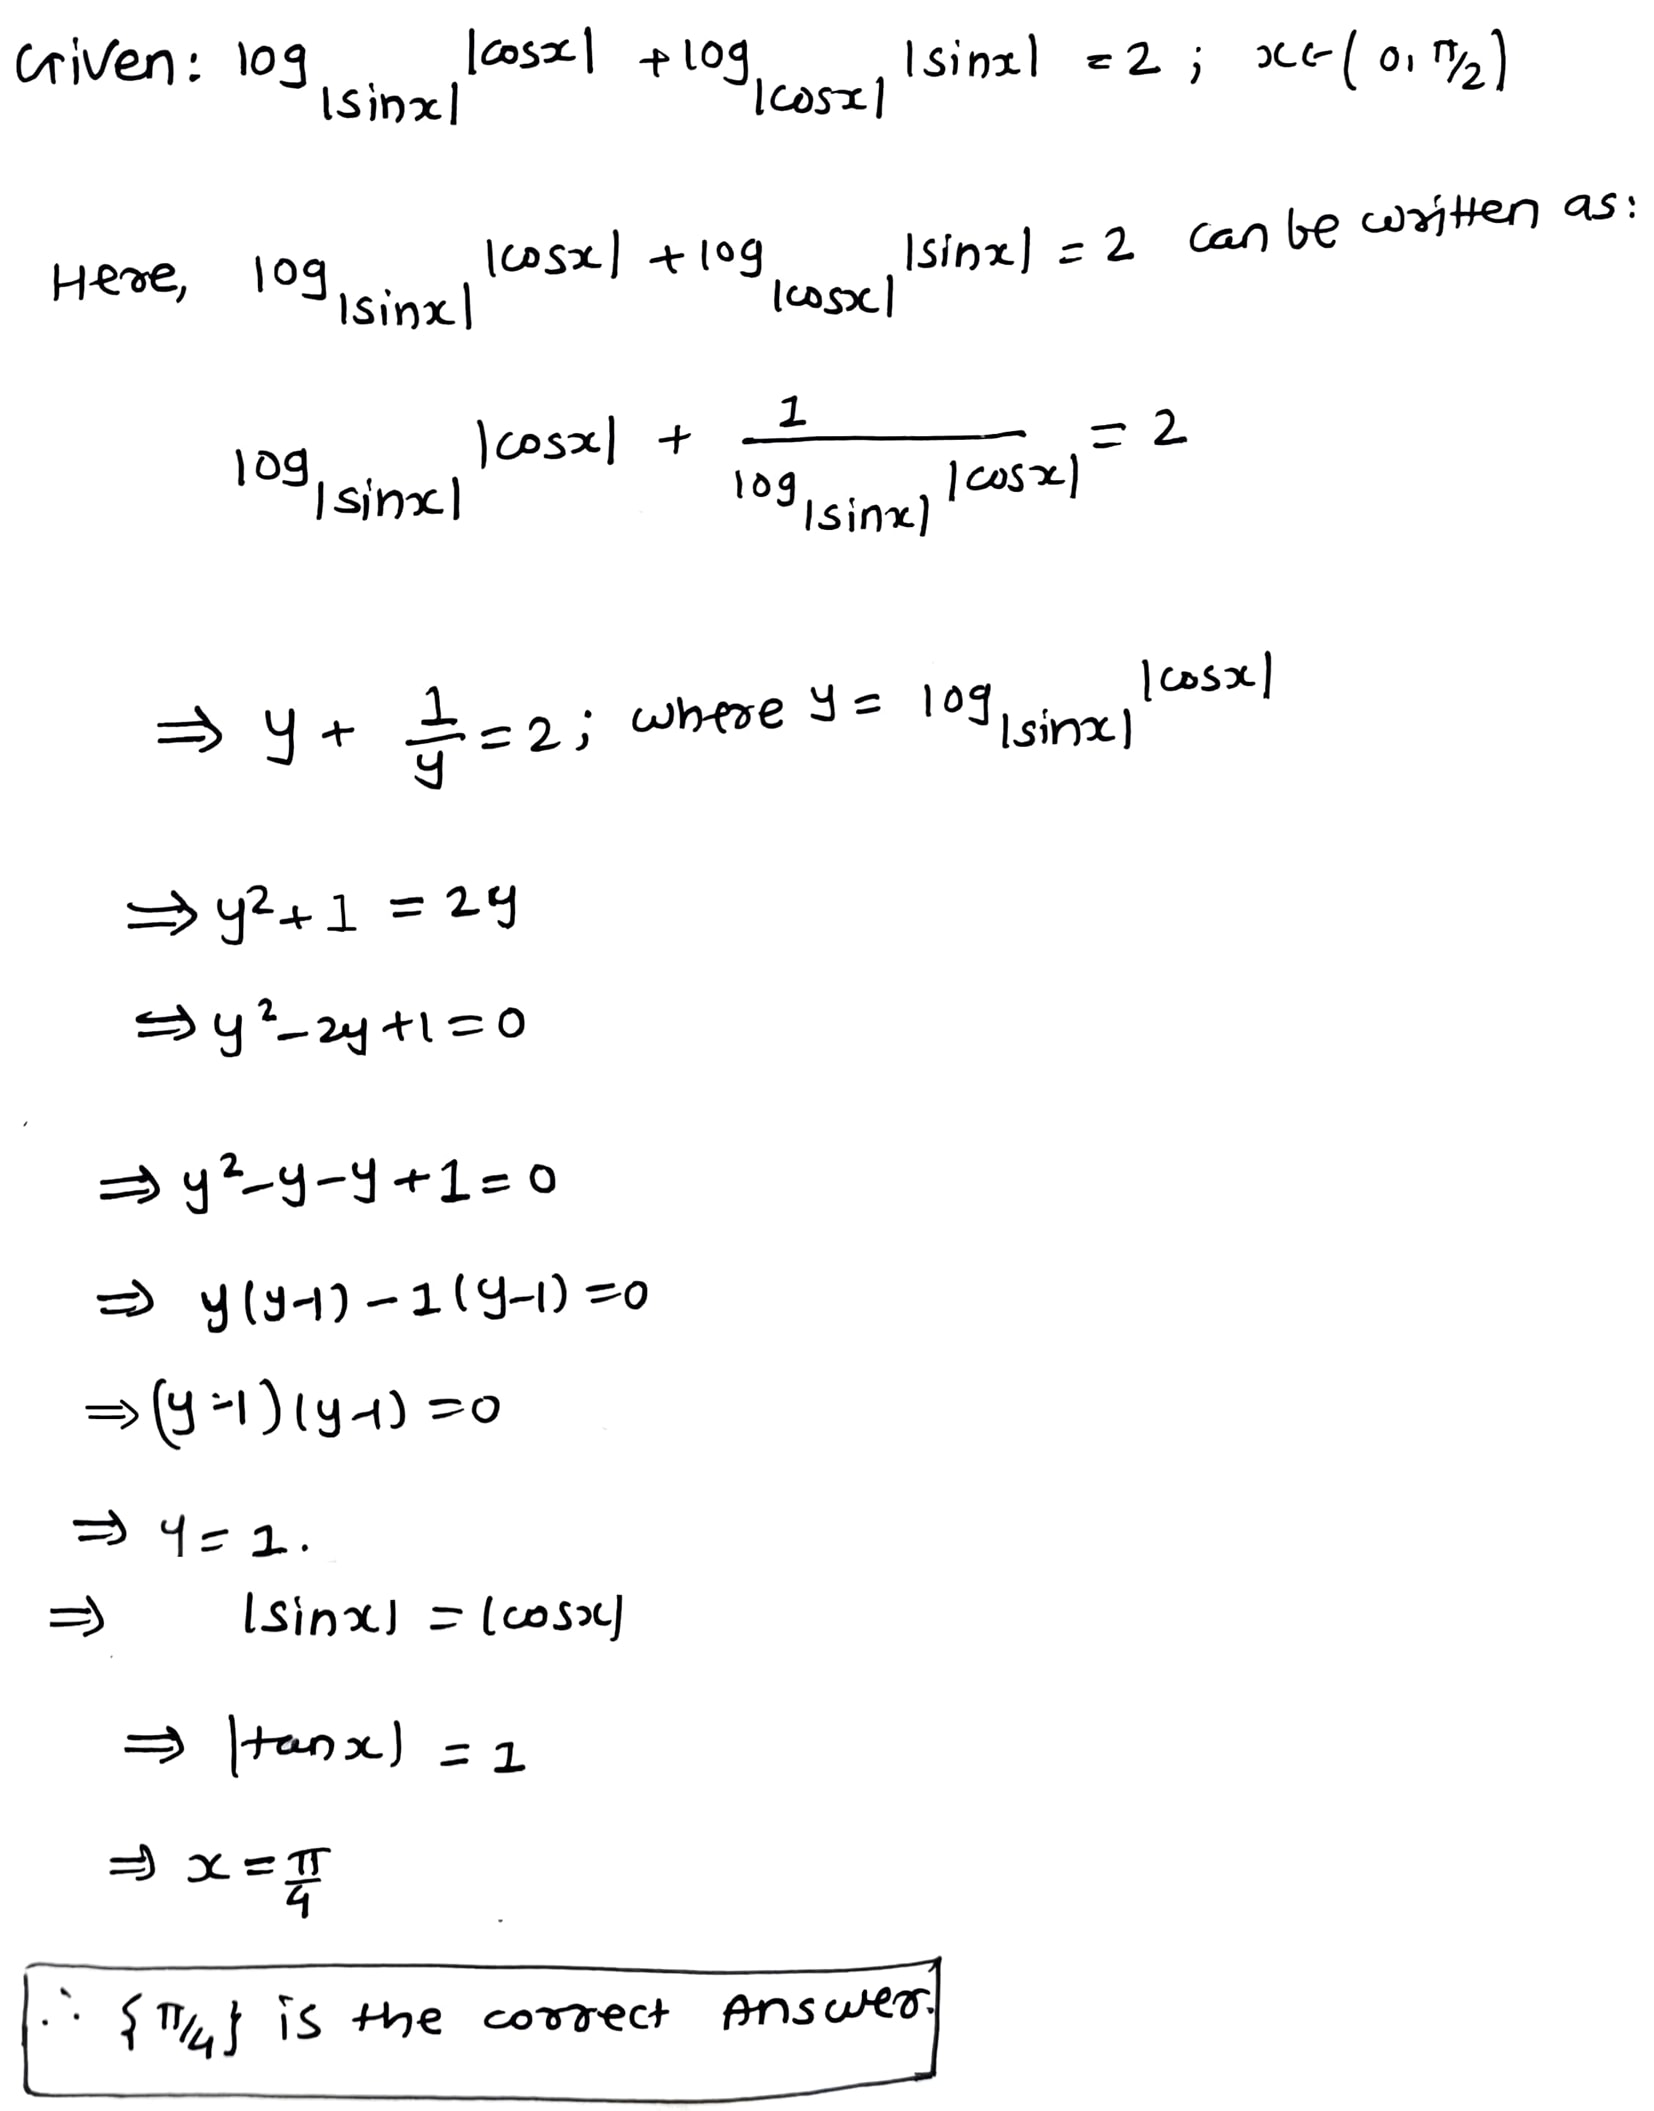 Given: log_|sinx| |cosx| + log_|cosx| |sinx| = 2 ; x∈(0, π/2)
Here, log_|sinx| |cosx| + log_|cosx| |sinx| = 2 can be written as:
log_|sinx| |cosx| + 1/(log_|sinx| |cosx|) = 2
⇒ y + 1/y = 2; where y = log_|sinx| |cosx|
⇒ y²+1 = 2y
⇒ y²-2y+1=0
⇒ y²-y-y+1=0
⇒ y(y-1)-1(y-1)=0
⇒ (y-1)(y-1)=0
⇒ y=1.
⇒ |sinx| = |cosx|
⇒ |tanx| = 1
⇒ x = π/4
∴ {π/4} is the correct Answer.